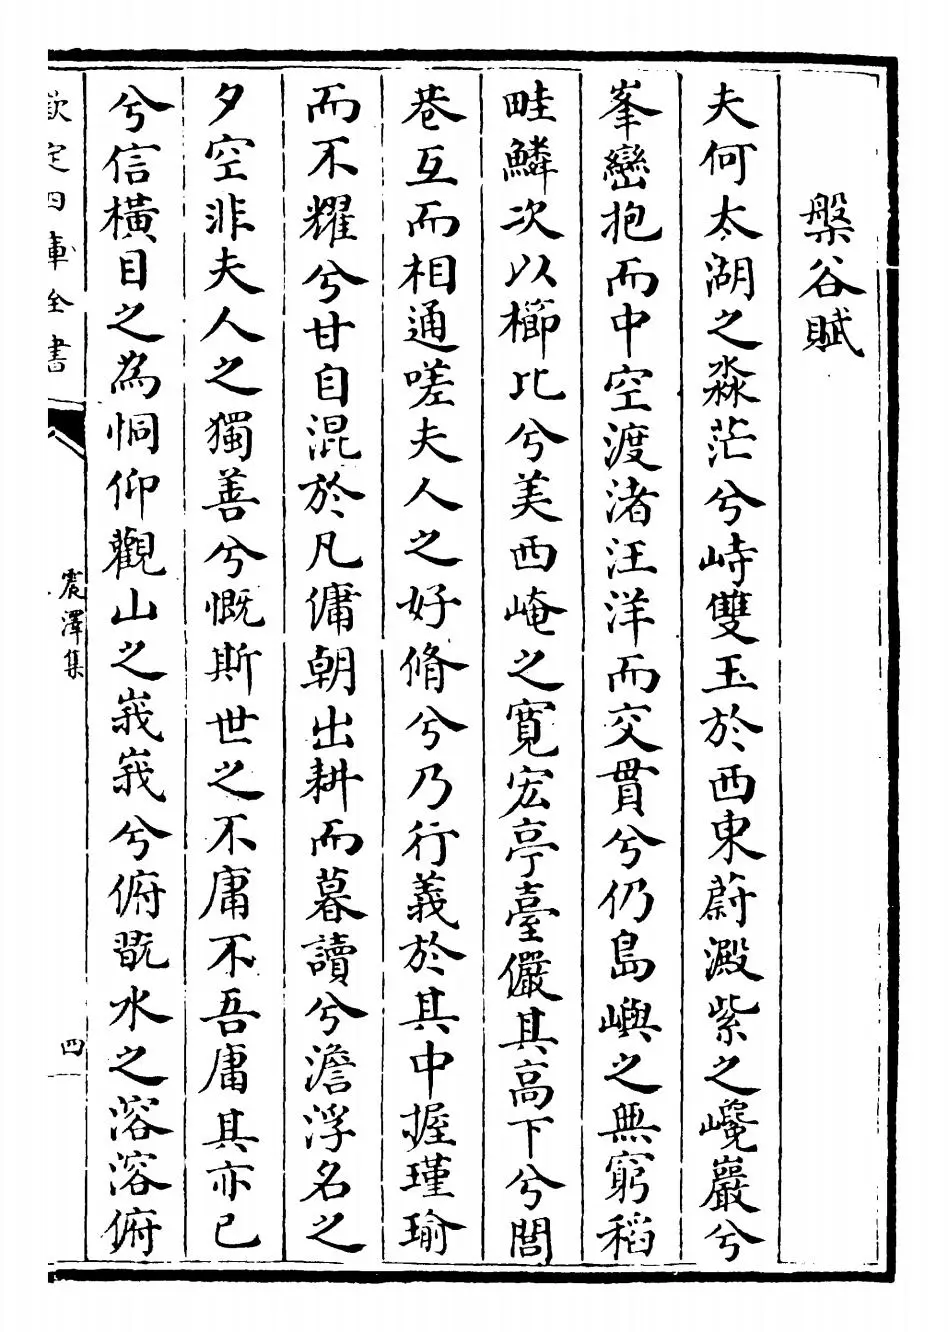 槃谷賦
夫何太湖之淼茫兮峙雙玉於西東蔚澱紫之巉巖兮
峯巒抱而中空渡渚汪洋而交貫兮仍島嶼之無窮稻
畦鱗次以櫛比兮美西崦之寛宏亭臺儼其高下兮閭
巷互而相通嗟夫人之好脩兮乃行義於其中握瑾瑜
而不耀兮甘自混於凡傭朝出耕而暮讀兮澹浮名之
夕空非夫人之獨善兮慨斯世之不庸不吾庸其亦已
兮信橫目之為恫仰觀山之峩峩兮俯翫水之溶溶俯
欽定四庫全書
震澤集
四